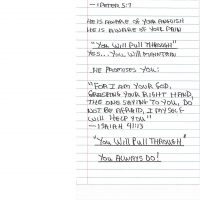 — 1 PETER 5:7
HE IS AWARE OF YOUR ANGUISH
HE IS AWARE OF YOUR PAIN
"YOU WILL PULL THROUGH"
YES... YOU WILL MAINTAIN
HE PROMISES YOU:
"FOR I AM YOUR GOD,
GRASPING YOUR RIGHT HAND,
THE ONE SAYING TO YOU, DO
NOT BE AFRAID, I MYSELF
WILL HELP YOU"
— ISAIAH 41:13
"YOU WILL PULL THROUGH"
YOU ALWAYS DO!